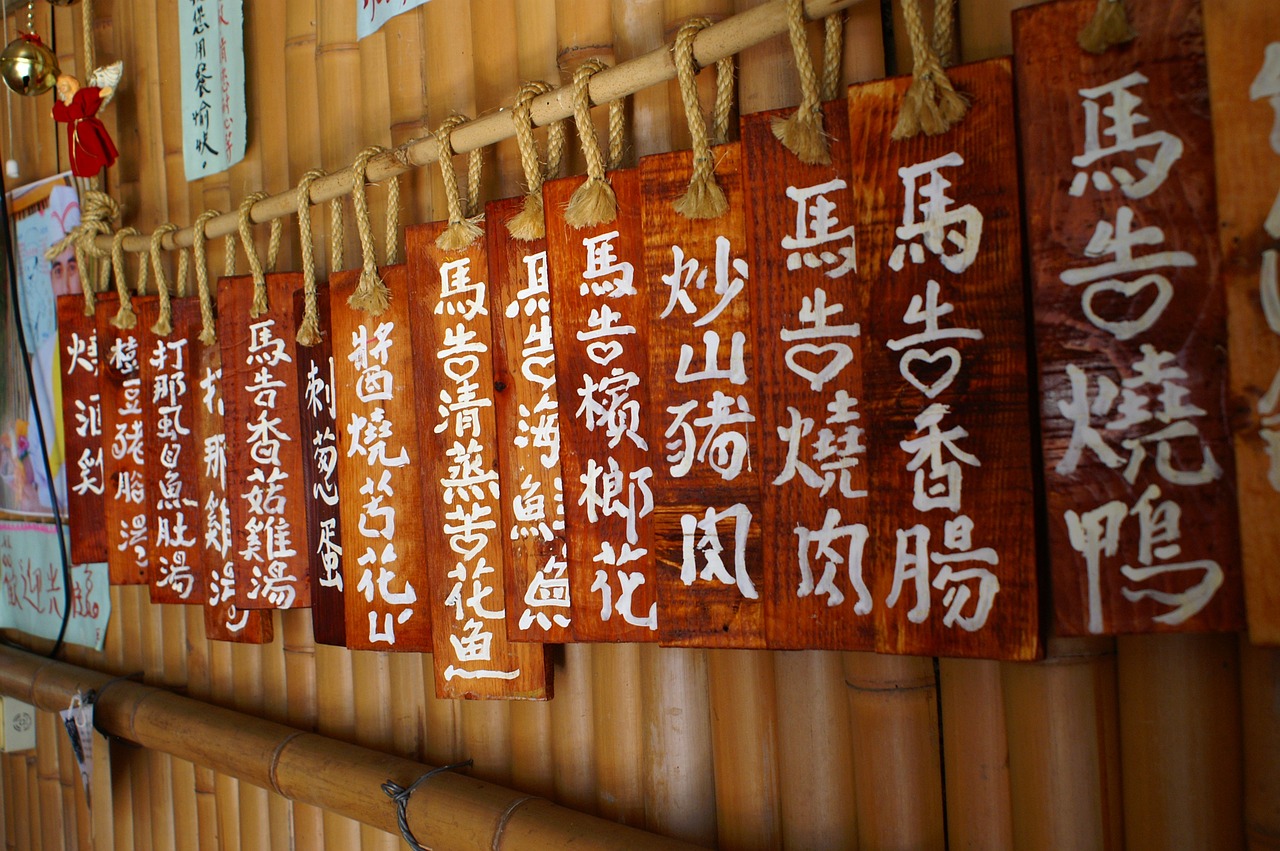 馬告燒鴨
馬告香腸
馬告燒肉
炒山豬肉
馬告檳榔花
馬告海
馬告清蒸苦花魚
醬燒苦花
刺蔥蛋
馬告香菇雞湯
打那雞湯
打那虱目魚肚湯
樹豆豬腳湯
燒酒
您用餐愉快.
歡迎光臨